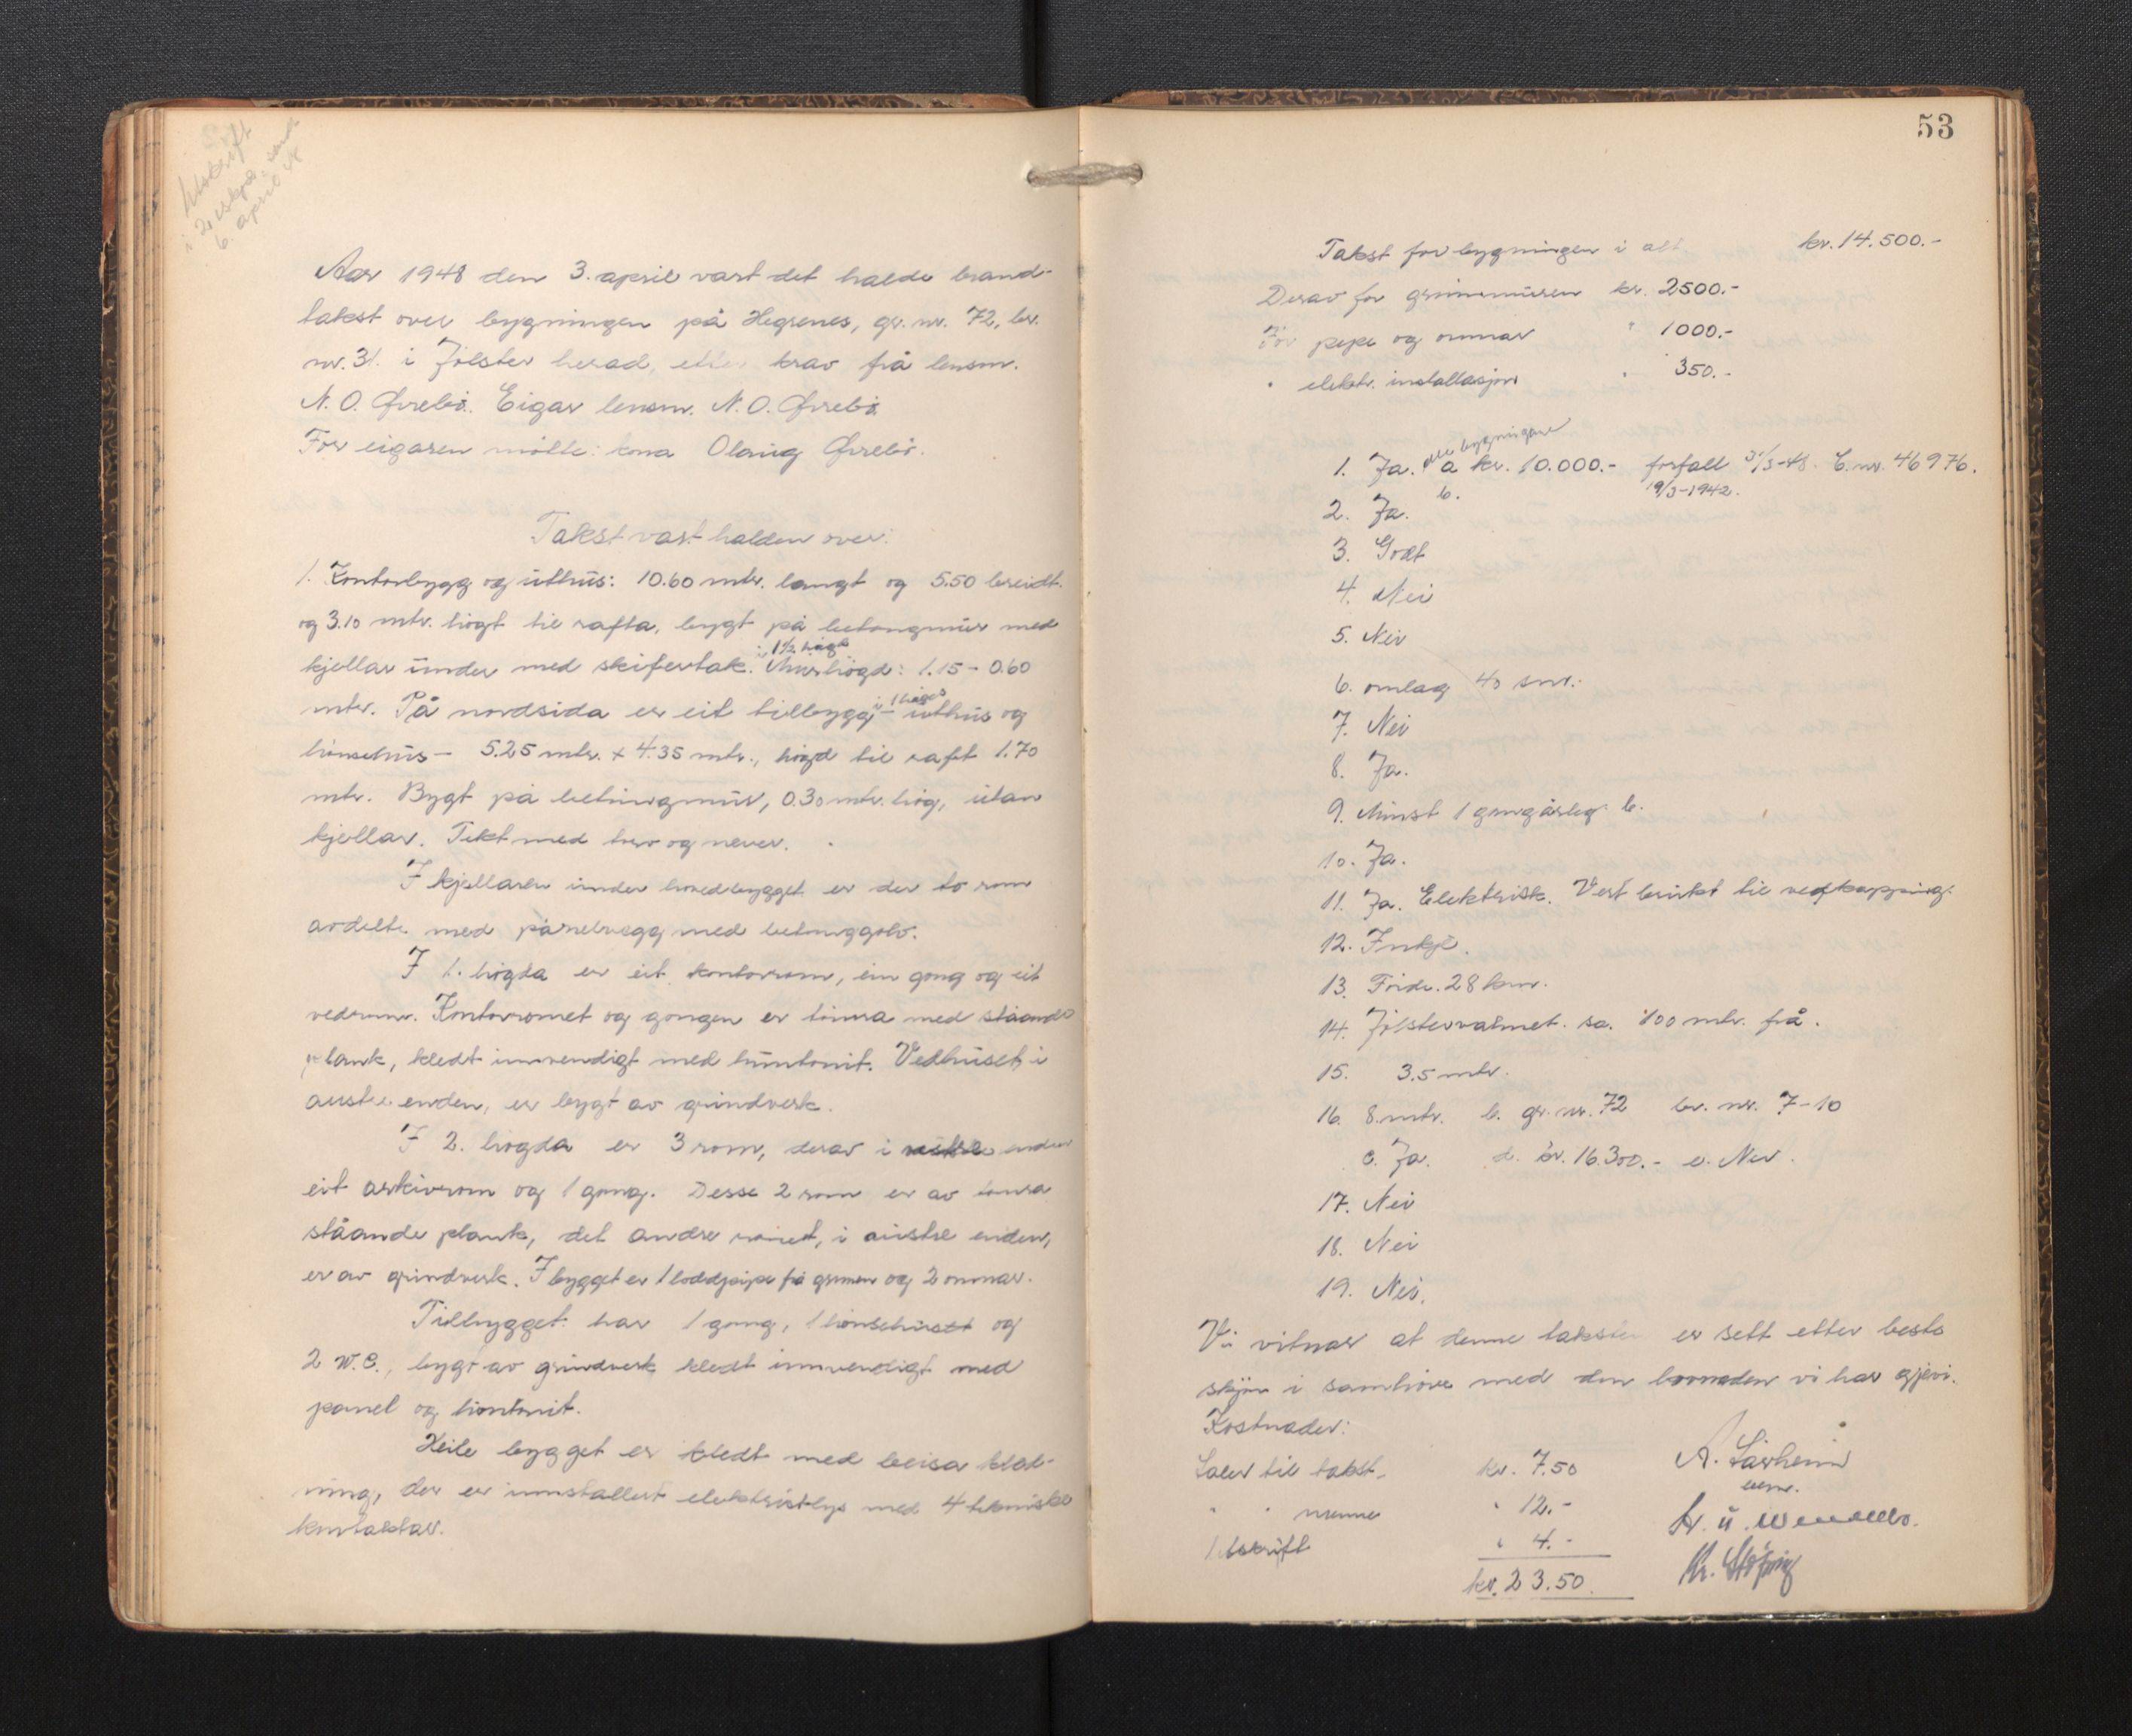 Utskrift
i 2 eskpl. sendt
6. april 48
Aar 1948 den 3. april vart det halde brand-
takst over bygningen på Hegrenes, gr. nr. 72, br.
nr. 31. i Jølster herad, etter krav frå lensm.
N. O. Ørrebø. Eigar lensm. N. O. Ørrebø.
For eigaren møtte: kona Olaug Ørrebø.
Takst vart halden over:
1. Kontorbygg og uthus: 10.60 mtr. langt og 5.50 breidt.
og 3.10 mtr. høgt til rafta, bygt på betongmur med
i 1½ høgd
kjellar under med skifertak. Murhøgd: 1.15 - 0.60
i 1 høgd
mtr. På nordsida er eit tilbygg - uthus og
hønsehus - 5.25 mtr. x 4.35 mtr., høgd til raft 1.70
mtr. Bygt på betongmur, 0.30 mtr. høg, utan
kjellar. Tekt med torv og never.
I kjellaren under hovedbygget er der to rom
avdelte med panelvegg med betonggolv.
I 1. høgda er eit kontorrom, ein gong og eit
vedrom. Kontorromet og gongen er tømra med ståande
plank, kledt innvendigt med huntonit. Vedhuset, i
austre enden, er bygt av grindverk.
I 2. høgda er 3 rom, derav i vestre enden
eit arkivrom og 1 gong. Desse 2 rom er av tømra
ståande plank, det andre romet, i austre enden,
er av grindverk. I bygget er 1 loddpipe frå grunnen og 2 omnar.
Tilbygget har 1 gong, 1 hønsehus og
2 W.C., bygt av grindverk kledt innvendigt med
panel og huntonit.
Heile bygget er kledt med beisa kled-
ning, der er innstallert elektrisklys med 4 tekniske
kontaktar.
53
Takst for bygningen i alt kr. 14.500.-
Derav for grunnmuren kr. 2500.-
For pipe og omnar " 1000.-
" elektr. installasjon " 350.-
alle bygningane
1. Ja. a kr. 10.000.- forfall 31/3-48. C. nr. 46976.
b. 19/3-1942.
2. Ja.
3. Godt
4. Nei
5. Nei
6. omlag 40 snr.
7. Nei
8. Ja.
9. Minst 1 gong årleg. b.
10. Ja.
11. Ja. Elektrisk. Vert brukt til vedkapping.
12. Inkje.
13. Førde. 28 km.
14. Jølstervatnet. ca. 100 mtr. frå.
15. 3.5 mtr.
16. 8 mtr. b. gr. nr. 72 br. nr. 7-10
c. Ja. d. kr. 16.300.- e. Nei.
17. Nei
18. Nei
19. Nei.
Vi vitnar at denne taksten er sett etter beste
skjøn i samhøve med den vi har gjevi.
Kostnader:
Løner til takst. kr. 7.50
" " menne " 12.-
Utskrift " 4.-
kr. 23.50.
A.